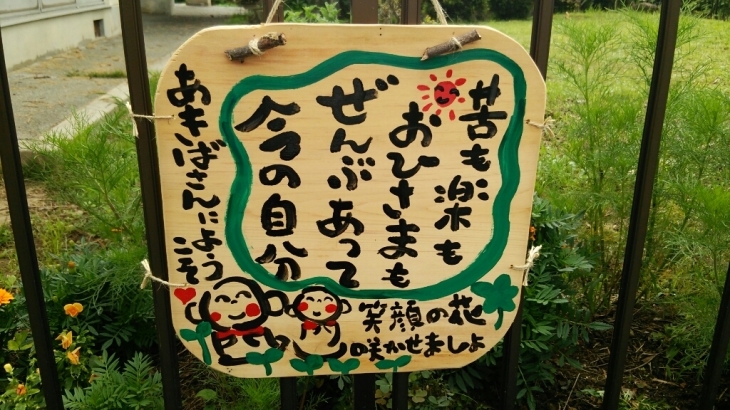 苦も楽も
おひさまも
ぜんぶあって
今の自分
あきばさんによう
こそ
笑顔の花
咲かせましょ